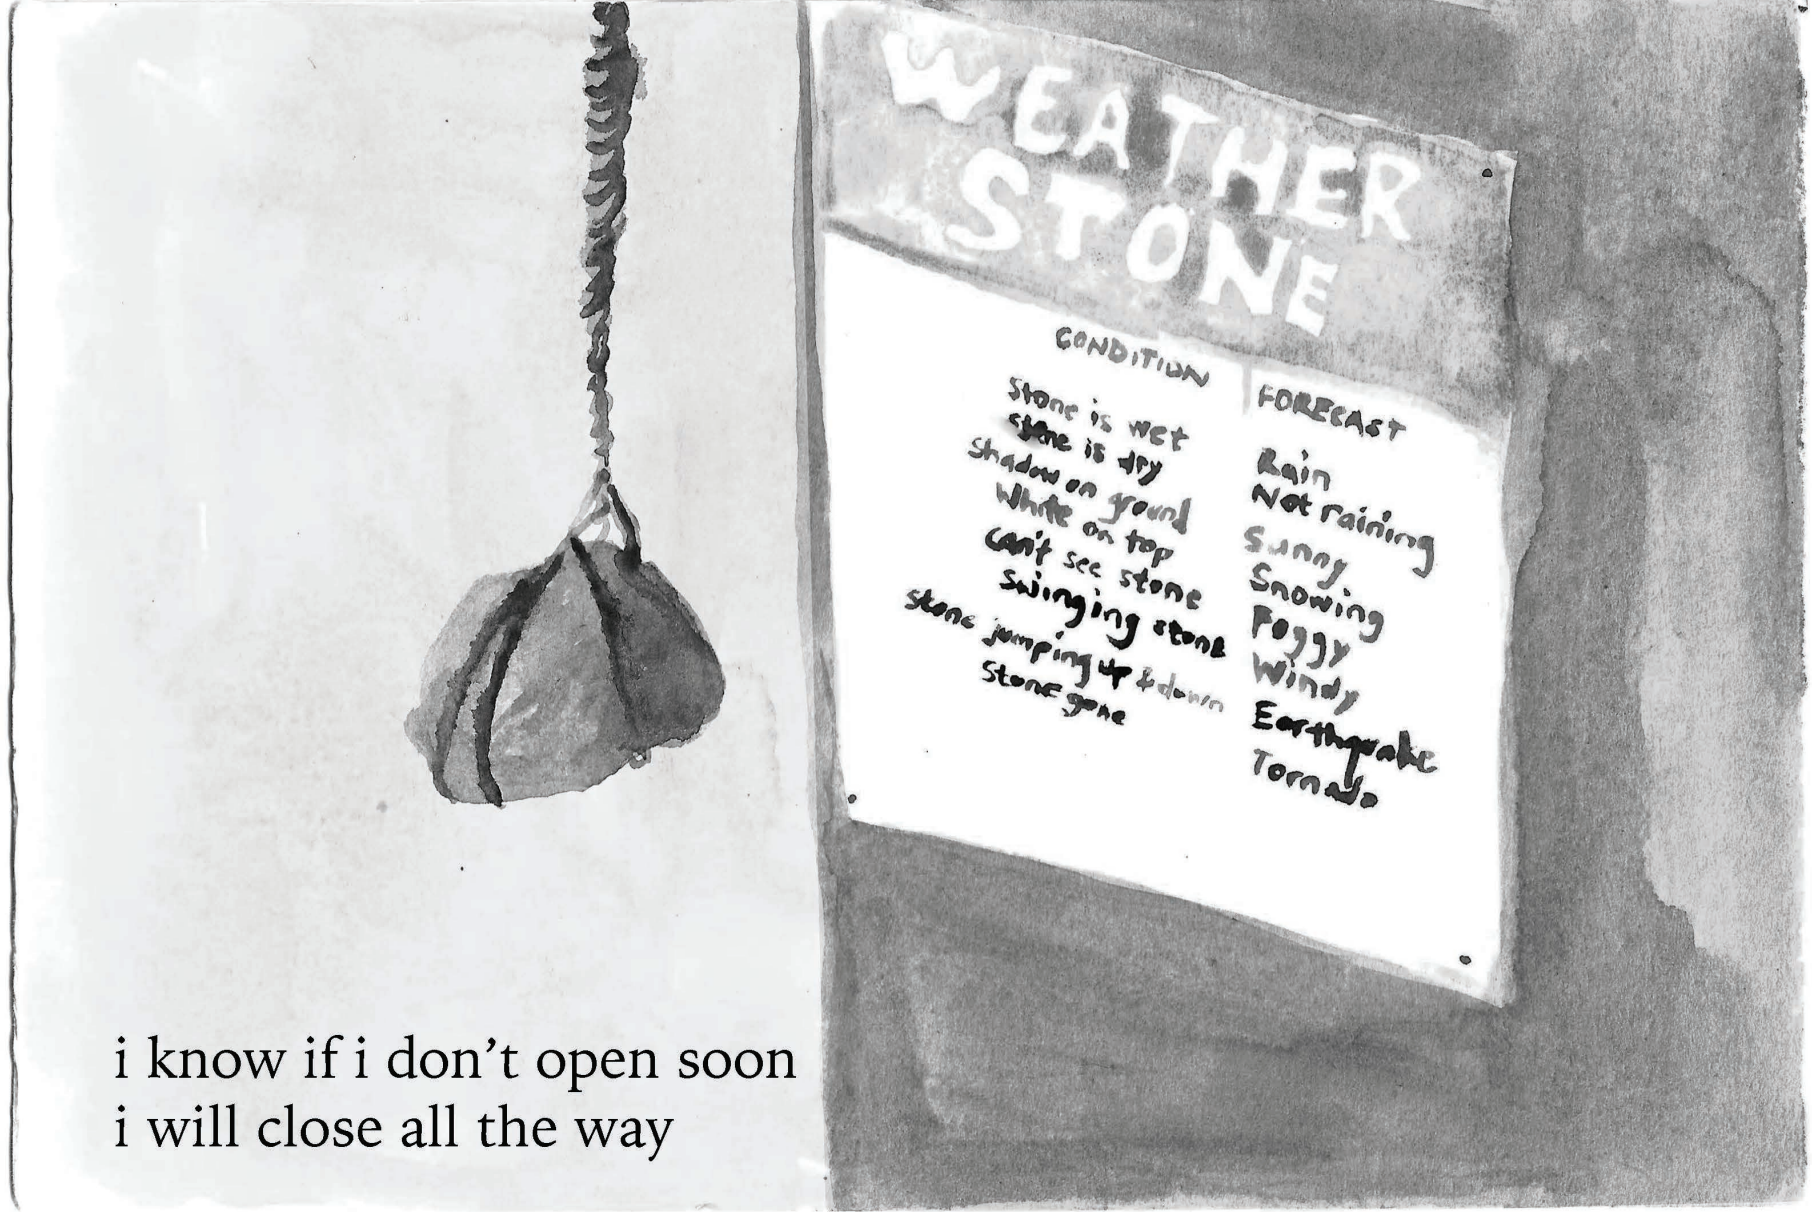 WEATHER
STONE
CONDITION FORECAST
Stone is wet Rain
Stone is dry Not raining
Shadow on ground Sunny
White on top Snowing
Can't see stone Foggy
Swinging stone Windy
Stone jumping up & down Earthquake
Stone gone Tornado
i know if i don’t open soon
i will close all the way